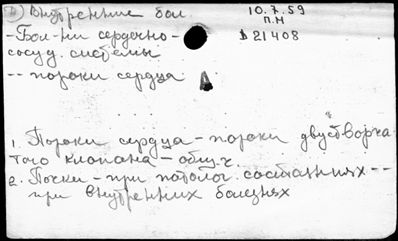 Ⓓ Внутренние бол. 10.7.59
п.н
-Бол-ни сердечно- D21408
сосуд. системы
-- пороки сердца
А
1. Пороки сердца - пороки двустворча
того клапана - общ. ч.
2. Почки - при патолог. состояниях --
при внутренних болезнях